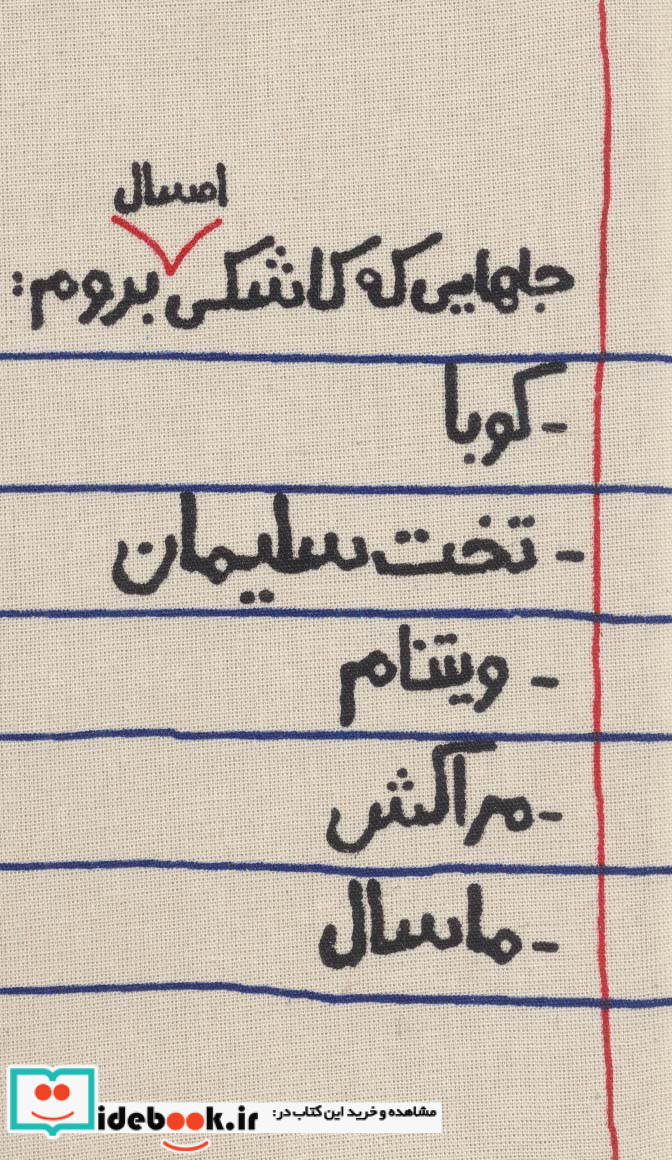 امسال
جاهایی که کاشکی بروم:
- کوبا
- تخت سلیمان
- ویتنام
- مراکش
- ماسال
مشاهده و خرید این کتاب در:
idebook.ir